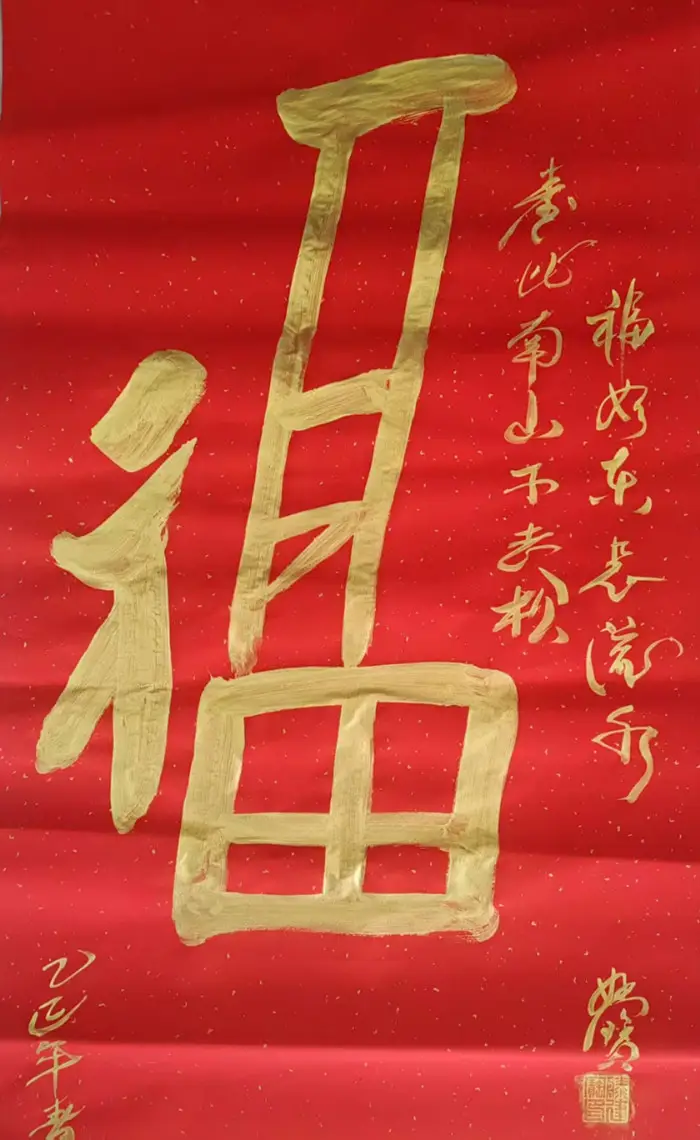 福如东长流水
寿比南山不老松
福
乙巳年春